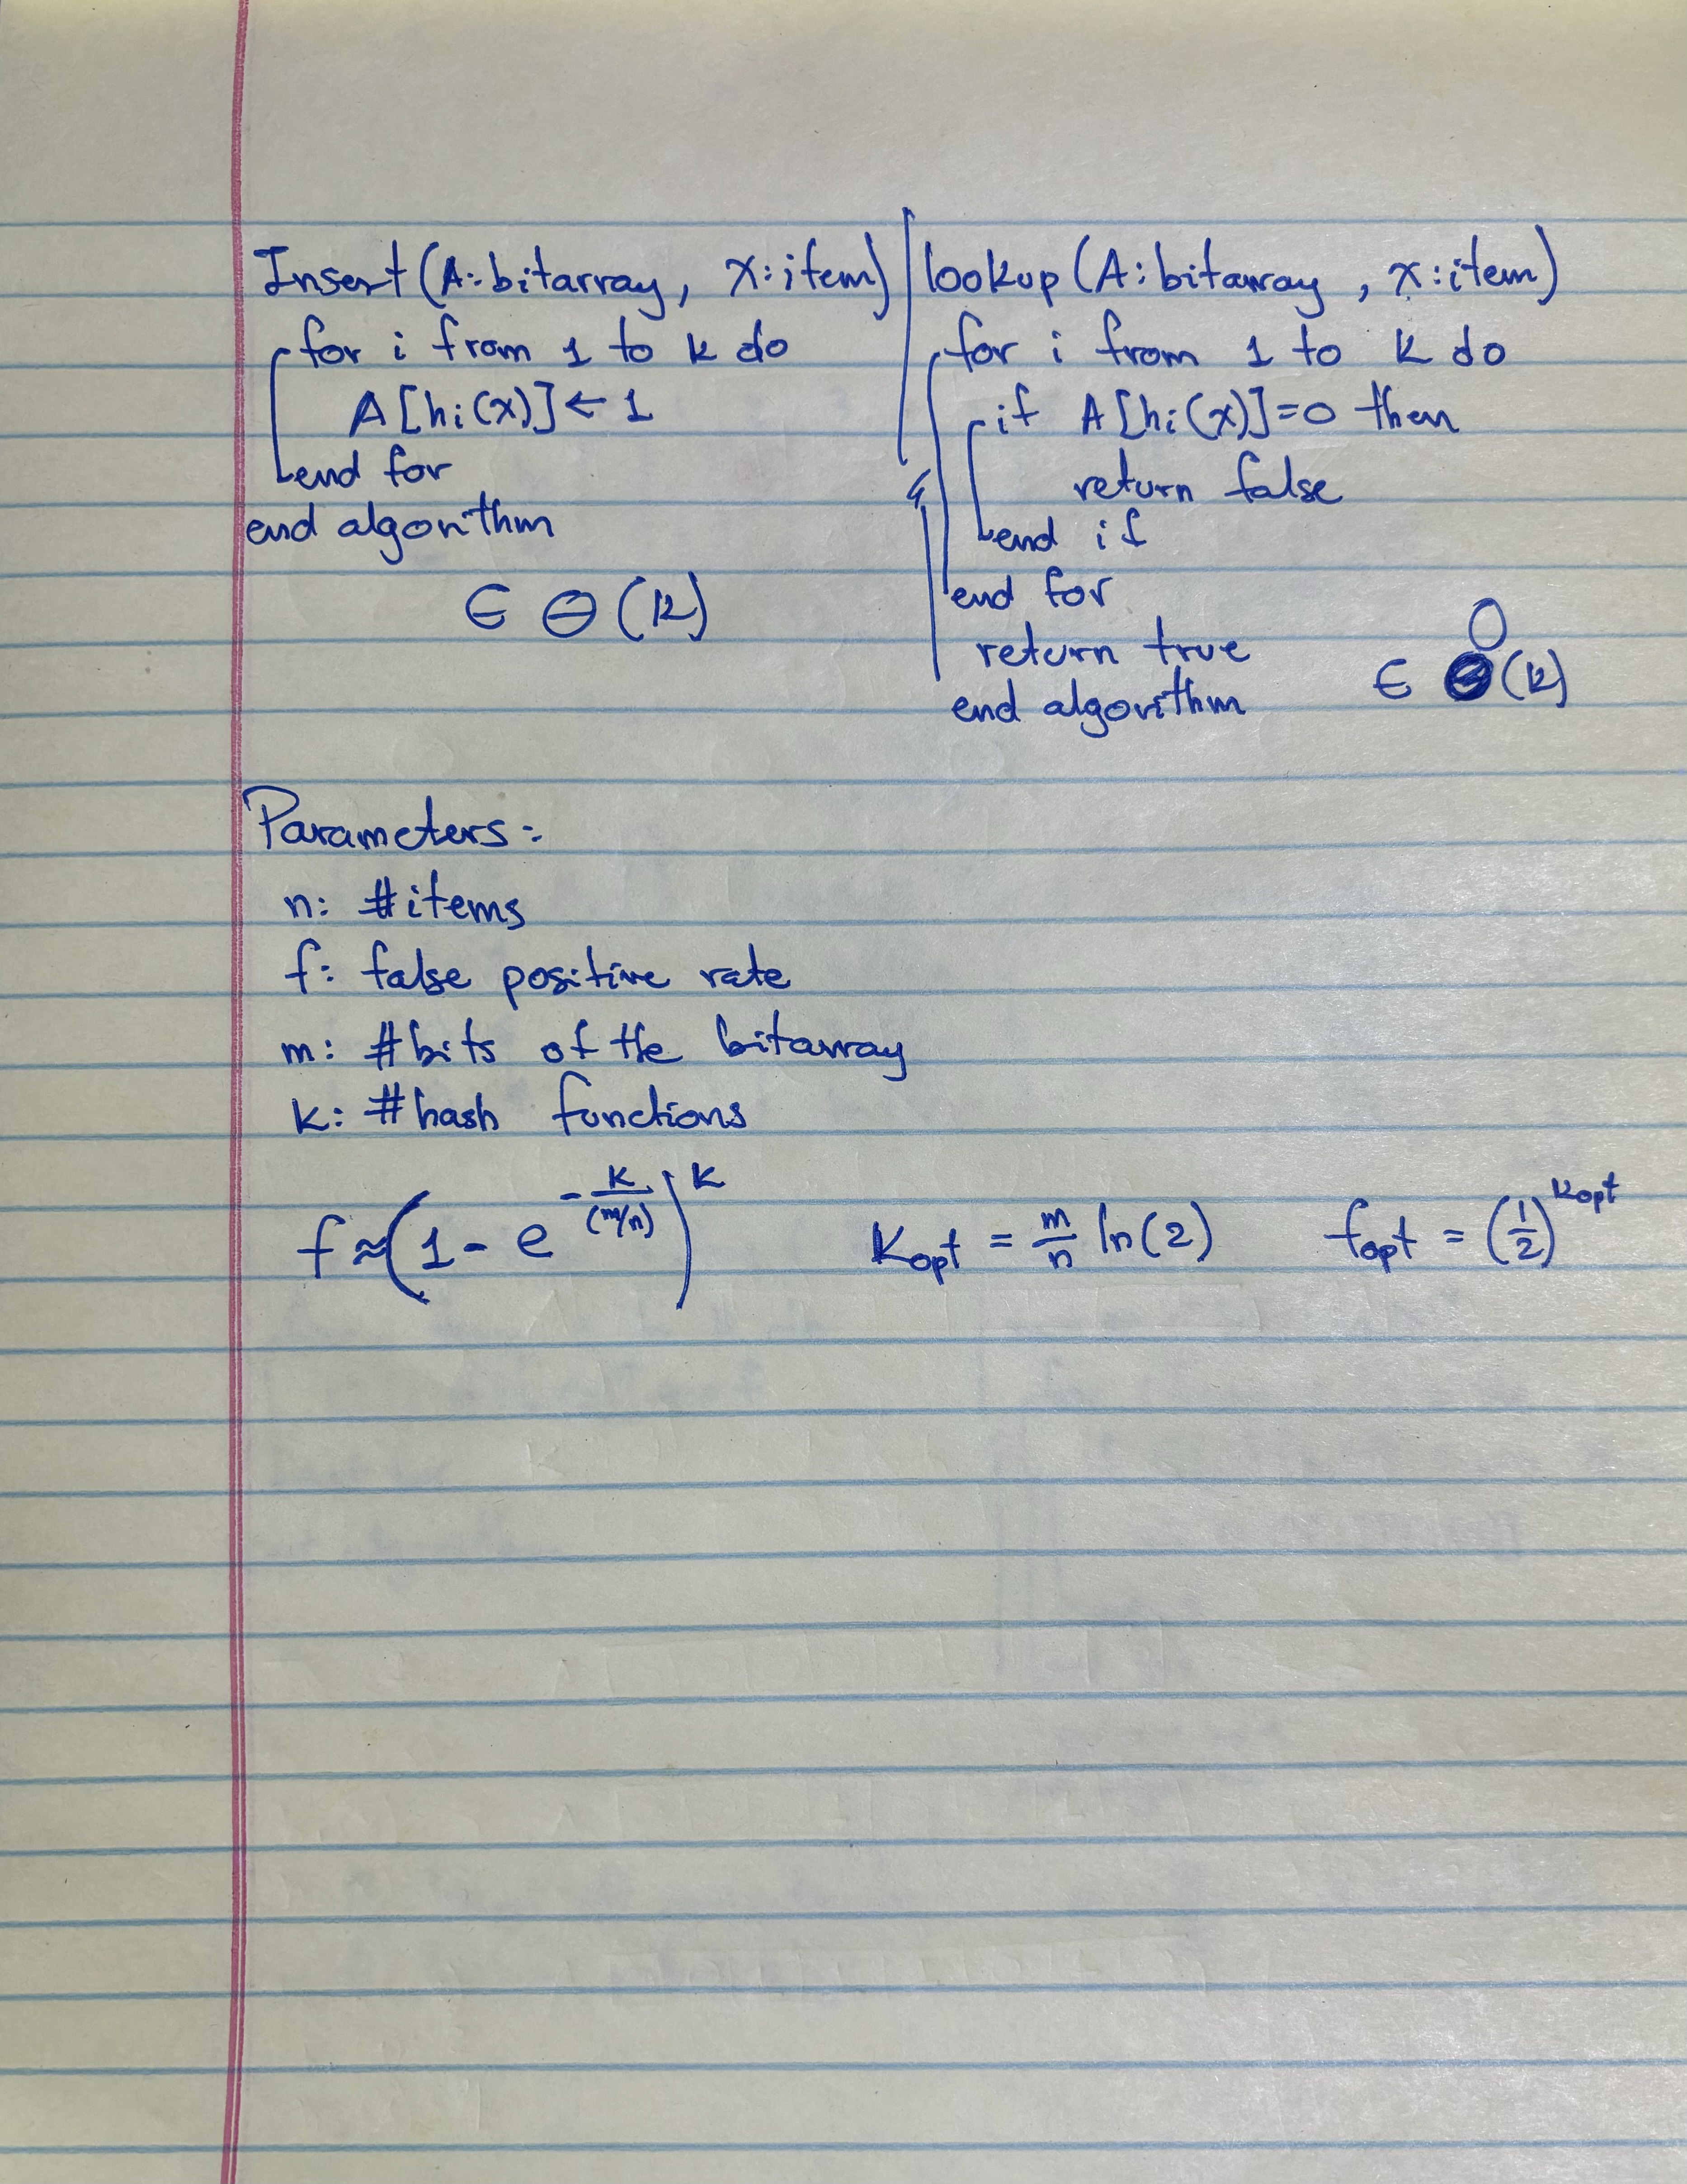 Insert(A:bitarray, x:item)
for i from 1 to k do
A[hi(x)] ← 1
end for
end algorithm
∈ Θ(k)
lookup(A:bitarray, x:item)
for i from 1 to k do
if A[hi(x)]=0 then
return false
end if
end for
return true
end algorithm
∈ O(k)
Parameters:
n: #items
f: false positive rate
m: #bits of the bitarray
k: #hash functions
f ≈ (1 - e^(-k/(m/n)))^k   Kopt = m/n ln(2)   fopt = (1/2)^Kopt